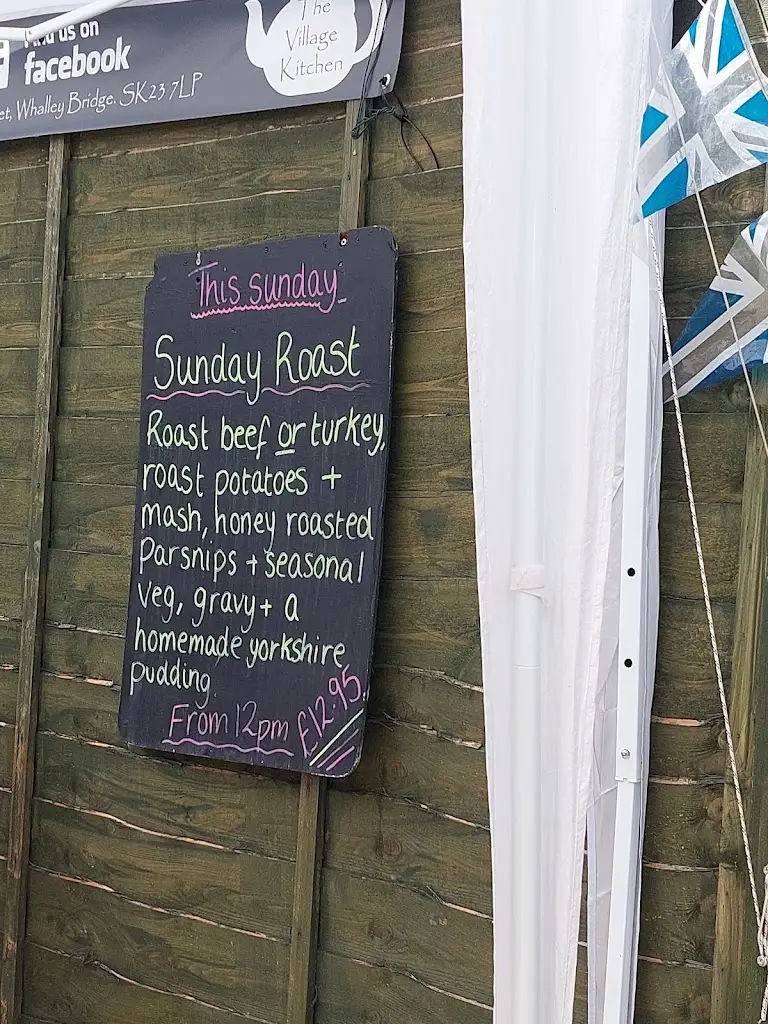 Find us on
facebook
et, Whalley Bridge. SK23 7LP
The
Village
Kitchen
This sunday
Sunday Roast
Roast beef or turkey,
roast potatoes +
mash, honey roasted
parsnips + seasonal
veg, gravy + a
homemade yorkshire
pudding
From 12pm
£12.95